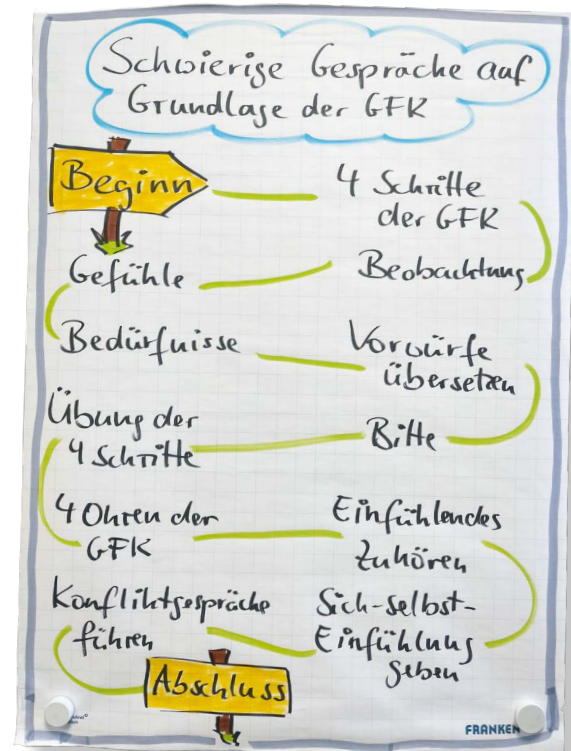 Schwierige Gespräche auf
Grundlage der GFK
Beginn
4 Schritte
der GFK
Beobachtung
Gefühle
Bedürfnisse
Vorwürfe
übersetzen
Bitte
Übung der
4 Schritte
4 Ohren der
GFK
Einfühlendes
Zuhören
Sich-selbst-
Einfühlung
geben
Konfliktgespräche
führen
Abschluss
FRANKEN